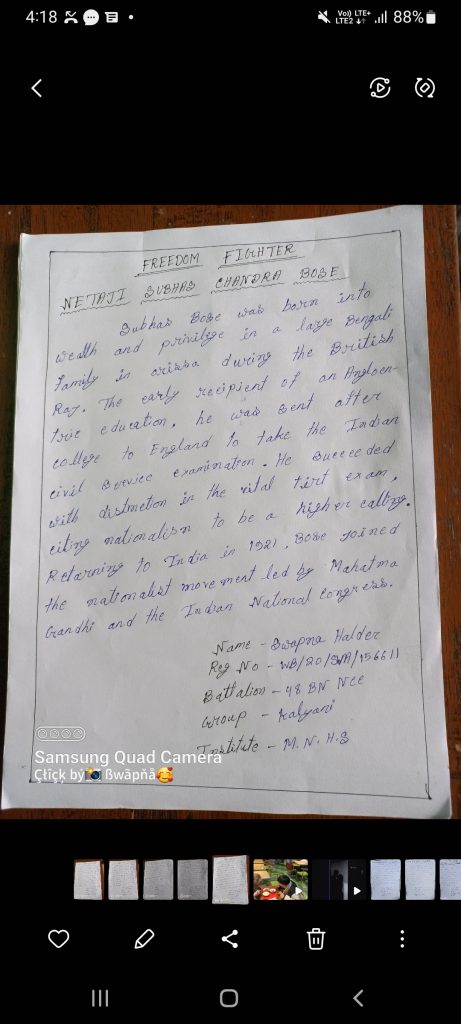 4:18
Vo)) LTE+
LTE2
88%
FREEDOM FIGHTER
NETAJI SUBHAS CHANDRA BOSE
Subhas Bose was born into
wealth and privilige in a large Bengali
family in orissa during the British
Raj. The early recipient of an Angloen-
tric education, he was sent after
college to England to take the Indian
civil service examination. He succeeded
with distinction in the vital first exam,
citing nationalism to be a higher calling.
Retarning to India in 1921, Bose joined
the nationalist movement led by Mahatma
Gandhi and the Indian National Congress.
Name - Swapna Halder
Reg No - WB/20/SWA/156611
Battalion - 48 BN NCC
Group - Kalyani
Institute - M.N.H.S
Samsung Quad Camera
Çłiçk bý📸ßwãpñå🥰